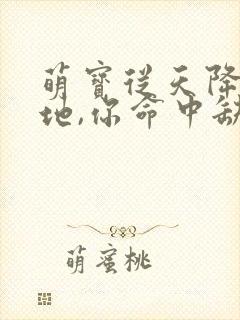 萌寶從天降
地,你命中缺
萌蜜桃